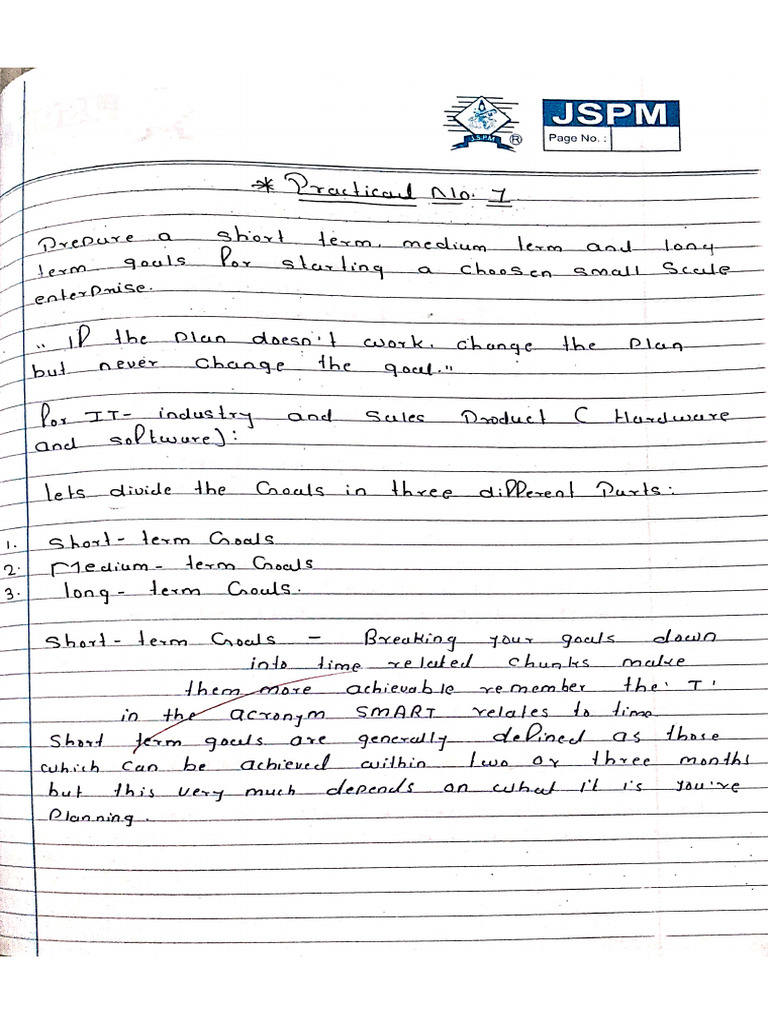 JSPM
J.S.P.M
®
Page No. :
* Practical No. 7
Prepare a short term, medium term and long
term goals for starting a choosen small scale
enterprise.
"If the plan doesn't work, change the plan
but never change the goal."
for IT- industry and Sales Product ( Hardware
and software):
lets divide the Goals in three different Parts:
1. Short- term Goals
2. Medium- term Goals
3. long- term Goals.
Short- term Goals - Breaking your goals down
into time related chunks make
them more achievable remember the 'T'
in the acronym SMART relates to time
Short term goals are generally defined as those
which can be achieved within two or three months
but this very much depends on what it is you're
Planning.